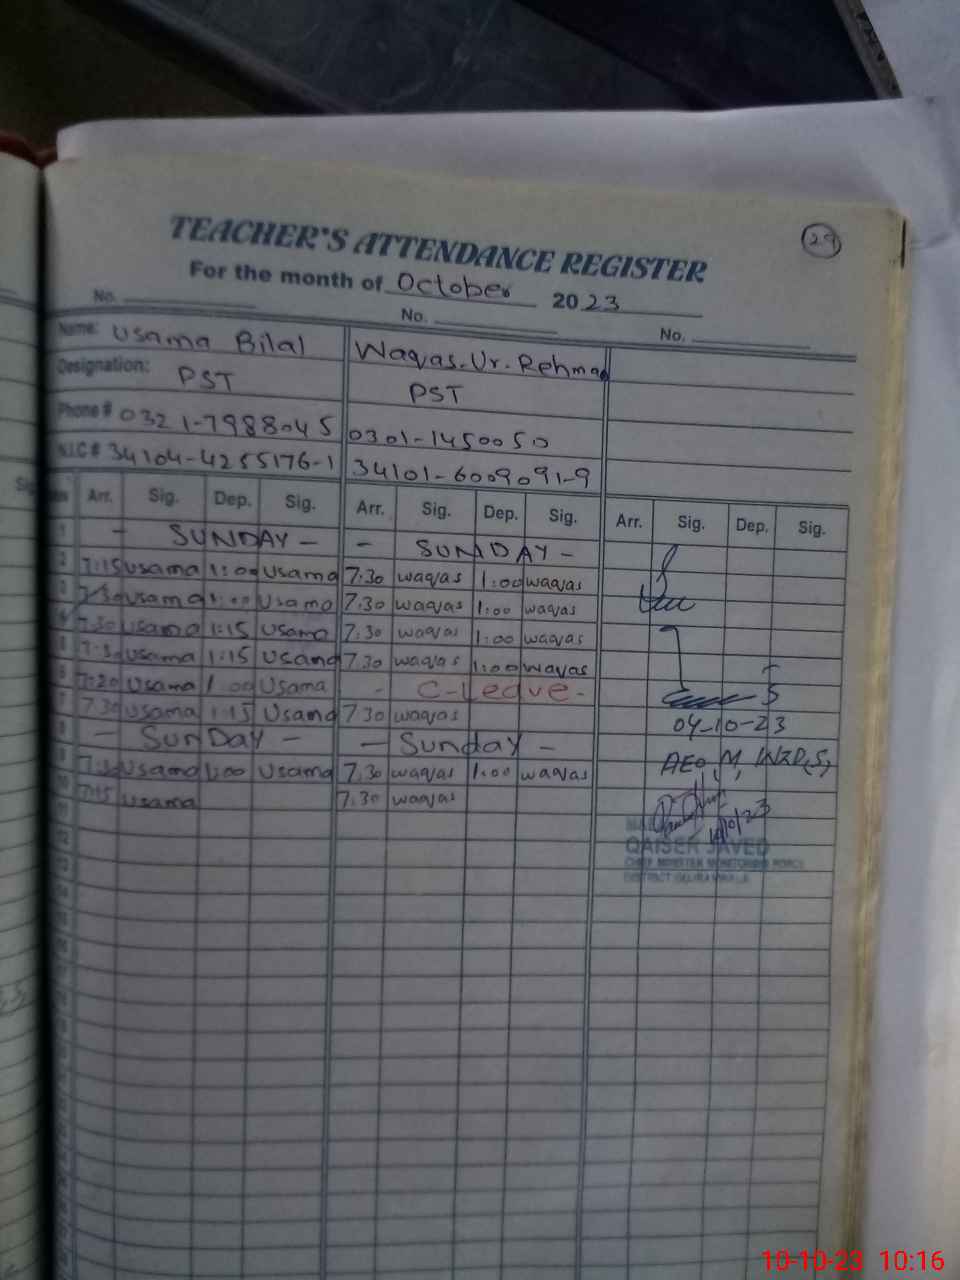 29
TEACHER'S ATTENDANCE REGISTER
For the month of October 2023
No. No. No.
Name: Usama Bilal Waqas.Ur.Rehman
Designation: PST PST
Phone # 0321-7988045 0301-1450050
N.I.C # 34104-4255176-1 34101-6009091-9
Arr. Sig. Dep. Sig. Arr. Sig. Dep. Sig. Arr. Sig. Dep. Sig.
1 - SUNDAY - - SUNDAY -
2 7:15 Usama 1:00 Usama 7:30 waqas 1:00 waqas
3 7:30 Usama 1:00 Usama 7:30 waqas 1:00 waqas
4 7:30 Usama 1:15 Usama 7:30 waqas 1:00 waqas
5 7:30 Usama 1:15 Usama 7:30 waqas 1:00 waqas
6 7:20 Usama 1:00 Usama - C-Leave -
7 7:30 Usama 1:15 Usama 7:30 waqas 04-10-23
8 - SunDay - - Sunday -
9 7:30 Usama 1:00 Usama 7:30 waqas 1:00 waqas AEO, M,
10 7:15 Usama 7:30 waqas
11
12
13
14
10/10/23
QAISER JAVED
CHIEF MINISTER MONITORING FORCE
DISTRICT GUJRANWALA
10-10-23 10:16